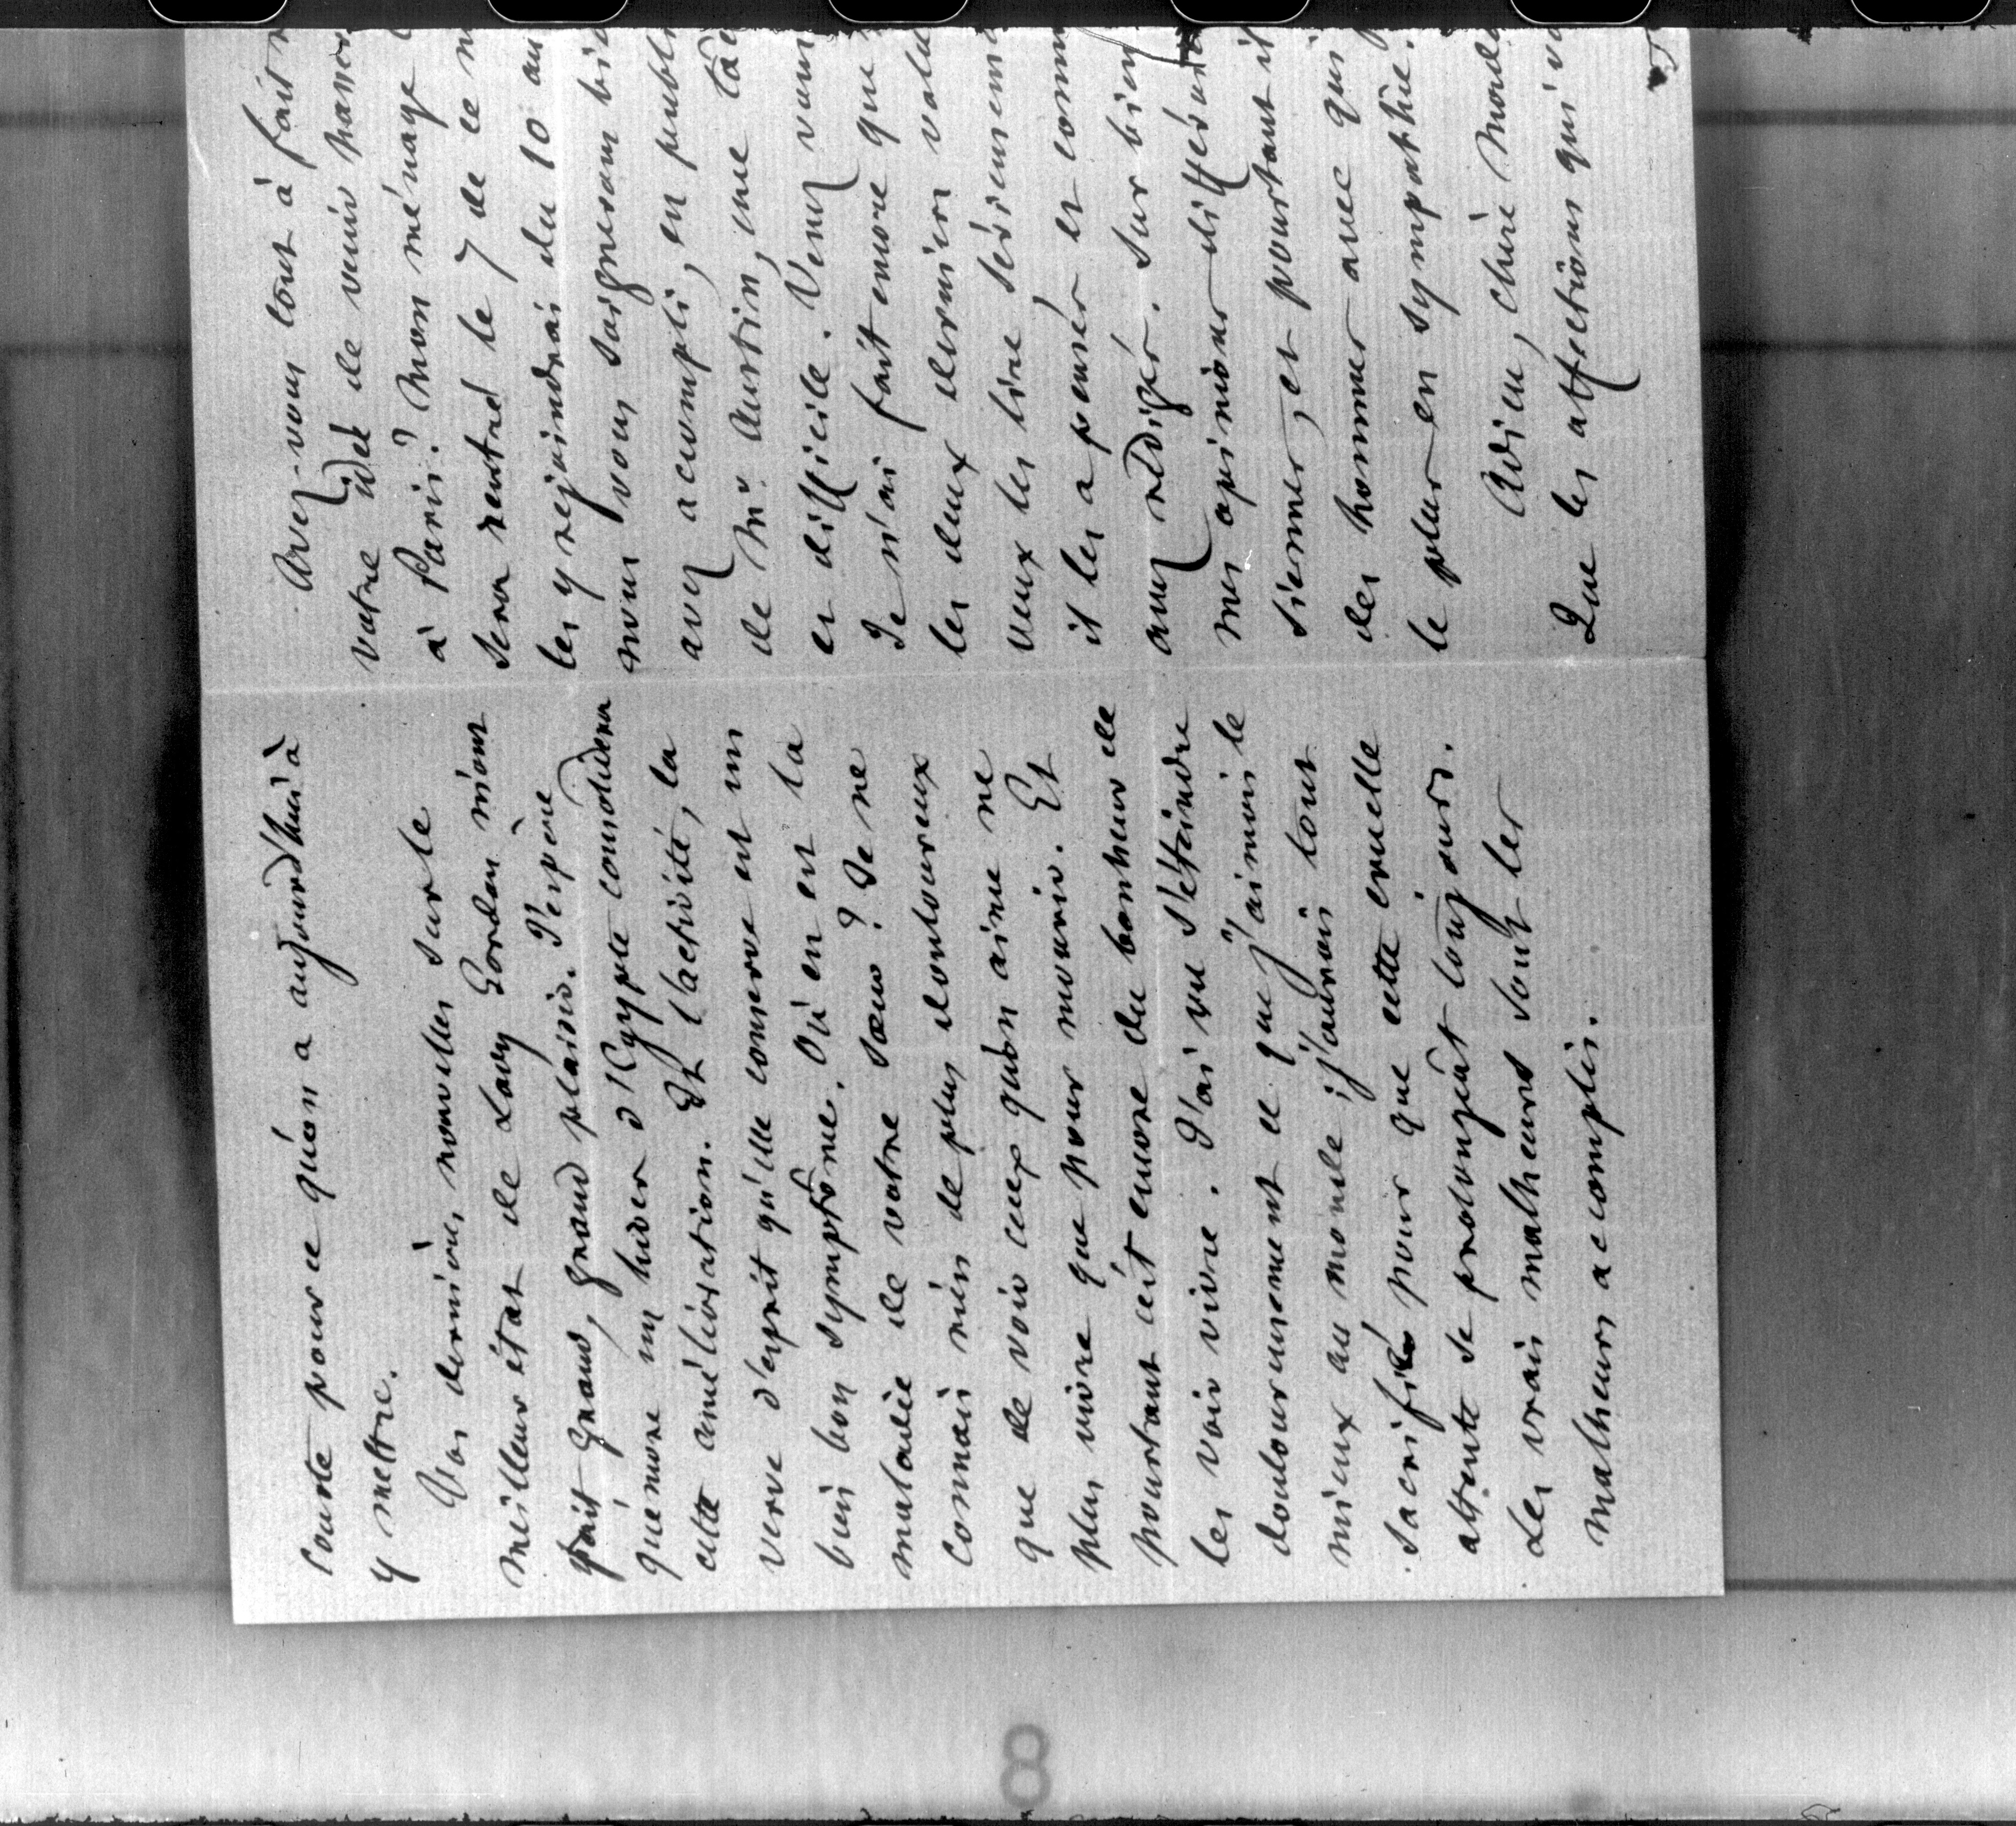 courte pour ce qu'on a aujourd'hui à
y mettre.
Vos dernières nouvelles sur le
meilleur état de Lady Gordon m'ont
fait grand, grand plaisir. J'espère
qu'encore un hiver d'Egypte consolidera
cette amélioration. Et l'activité, la
verve d'esprit qu'elle conserve est un
bien bon symptôme. Où en est la
maladie de votre sœur ? Je ne
connais rien de plus douloureux
que de voir ceux qu'on aime ne
plus vivre que pour mourir. Et
pourtant c'est encore du bonheur de
les voir vivre. J'ai vu s'éteindre
douloureusement ce que j'aimais le
mieux au monde ; j'aurais tout
sacrifié pour que cette cruelle
attente se prolongeât toujours.
Les vrais malheurs sont les
malheurs accomplis.
Avez-vous tout à fait
votre idée de venir
à Paris ? Mon ménage
sera rentré le 7 de ce
les y rejoindrai du 10 au
nous vous soignerons
avez accompli, en
de Mr Austin, une
et difficile. Venez
Je n'ai fait encore que
les deux derniers
veux les lire
il les a pensés et
avez rédigés. Sur
mes opinions
siennes, et pourtant il
des hommes avec qui
le plus en sympathie.
Adieu, chère
Que les affections qui